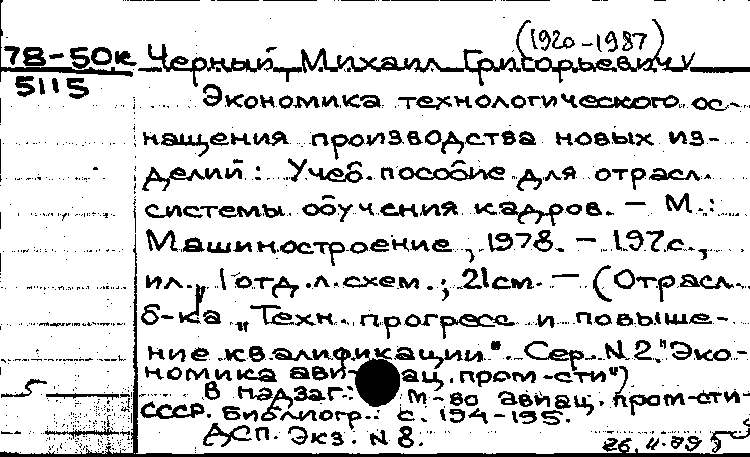 (1920-1987)
78-50к Черный, Михаил Григорьевич
5115
Экономика технологического ос-
нащения производства новых из-
делий: Учеб. пособие для отрасл.
системы обучения кадров. - М.:
Машиностроение, 1978. - 197с.,
ил., 1 отд. л. схем.; 21см. - (Отрасл.
б-ка „Техн. прогресс и повыше-
ние квалификации". Сер. N2. "Эко-
номика ави ац. пром-сти")
В надзаг.: М-во авиац. пром-сти
СССР. Библиогр.: с. 194-195.
ДСП. Экз. N 8.